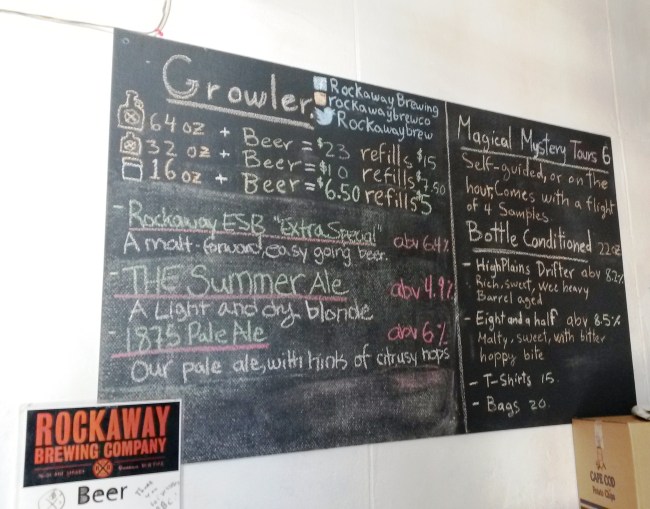 Growler
Rockaway Brewing
rockawaybrewco
Rockawaybrew
64 oz + Beer = $23 refills $15
32 oz + Beer = $10 refills $7.50
16 oz + Beer = $6.50 refills $5
- Rockaway ESB "Extra Special" abv 6.4%
A malt-forward, easy going beer.
- THE Summer Ale abv 4.9%
A Light and dry blonde
- 1875 Pale Ale abv 6%
Our pale ale, with hints of citrusy hops
Magical Mystery Tours 6
Self-guided, or on the
hour, Comes with a flight
of 4 Samples.
Bottle Conditioned 22oz
- High Plains Drifter abv 8.2%
Rich, sweet, wee heavy
Barrel aged
- Eight and a half abv 8.5%
Malty, sweet, with bitter
hoppy bite
- T-Shirts 15.
- Bags 20.
ROCKAWAY
BREWING COMPANY
Beer
CAPE COD
Potato Chips